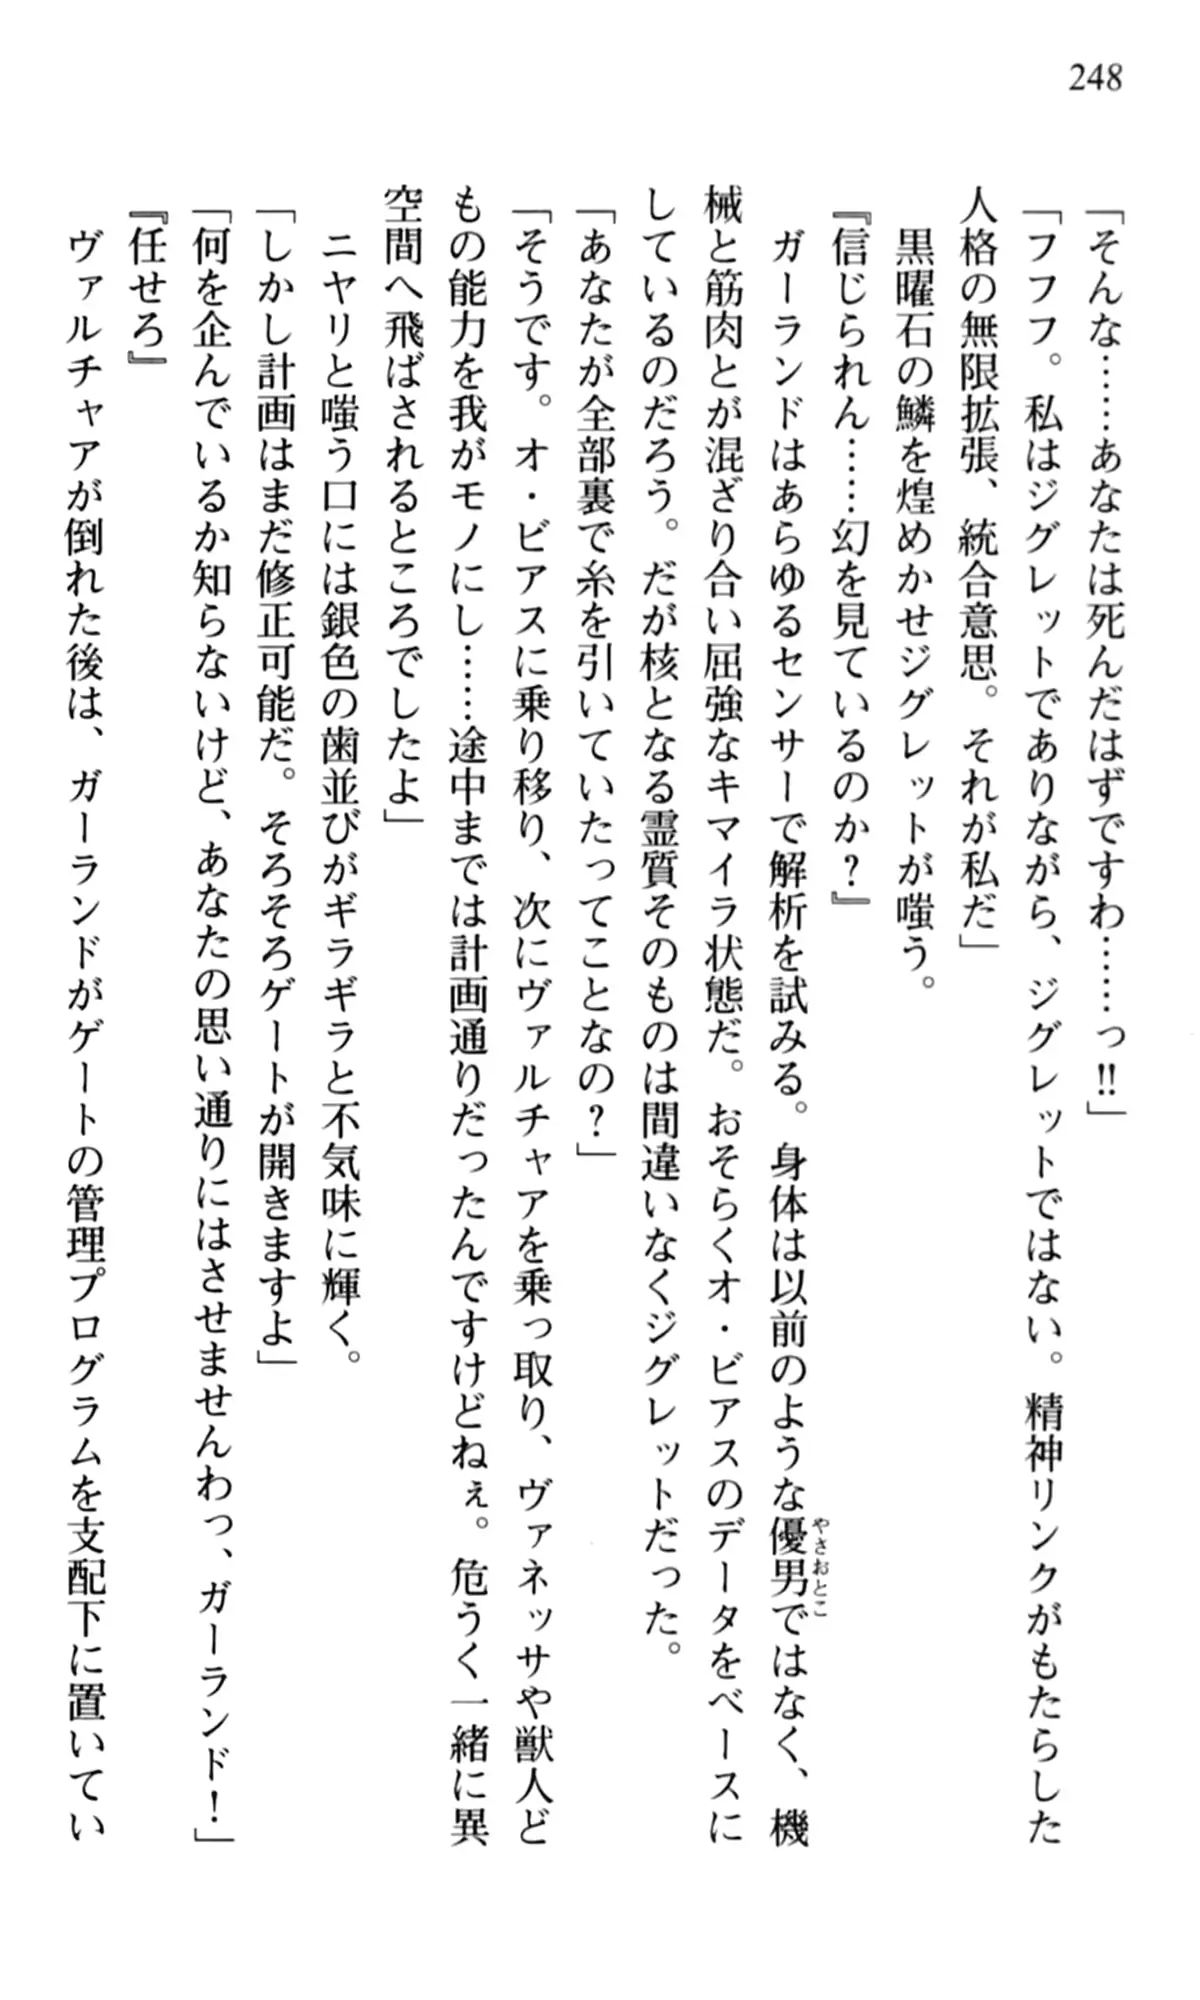 248
「そんな……あなたは死んだはずですわ……っ!!」
「フフフ。私はジグレットでありながら、ジグレットではない。精神リンクがもたらした
人格の無限拡張、統合意思。それが私だ」
黒曜石の鱗を煌めかせジグレットが嗤う。
『信じられん……幻を見ているのか?』
ガーランドはあらゆるセンサーで解析を試みる。身体は以前のような優男ではなく、機
やさおとこ
械と筋肉とが混ざり合い屈強なキマイラ状態だ。おそらくオ・ビアスのデータをベースに
しているのだろう。だが核となる霊質そのものは間違いなくジグレットだった。
「あなたが全部裏で糸を引いていたってことなの?」
「そうです。オ・ビアスに乗り移り、次にヴァルチャアを乗っ取り、ヴァネッサや獣人ど
もの能力を我がモノにし……途中までは計画通りだったんですけどねぇ。危うく一緒に異
空間へ飛ばされるところでしたよ」
ニヤリと嗤う口には銀色の歯並びがギラギラと不気味に輝く。
「しかし計画はまだ修正可能だ。そろそろゲートが開きますよ」
「何を企んでいるか知らないけど、あなたの思い通りにはさせませんわっ、ガーランド!」
『任せろ』
ヴァルチャアが倒れた後は、ガーランドがゲートの管理プログラムを支配下に置いてい